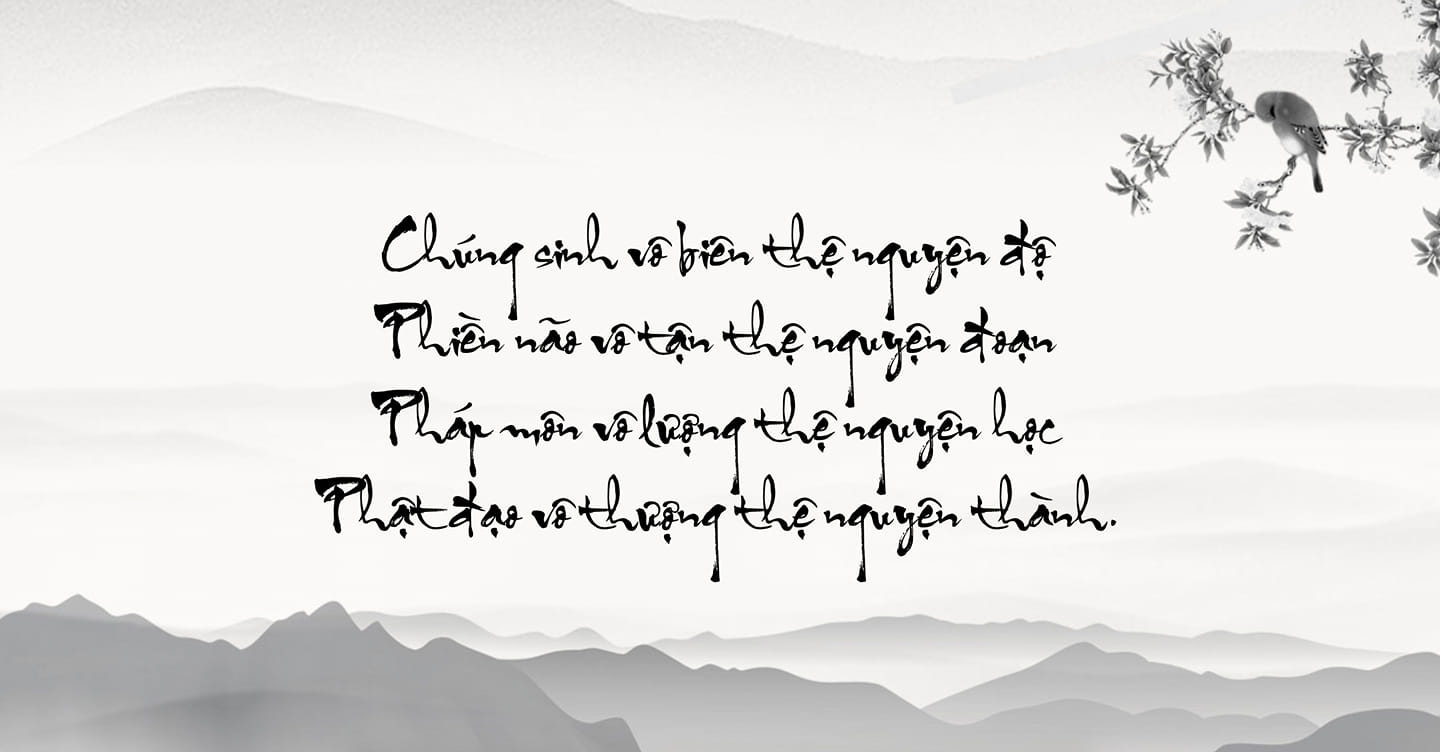 Chúng sinh vô biên thệ nguyện độ
Phiền não vô tận thệ nguyện đoạn
Pháp môn vô lượng thệ nguyện học
Phật đạo vô thượng thệ nguyện thành.